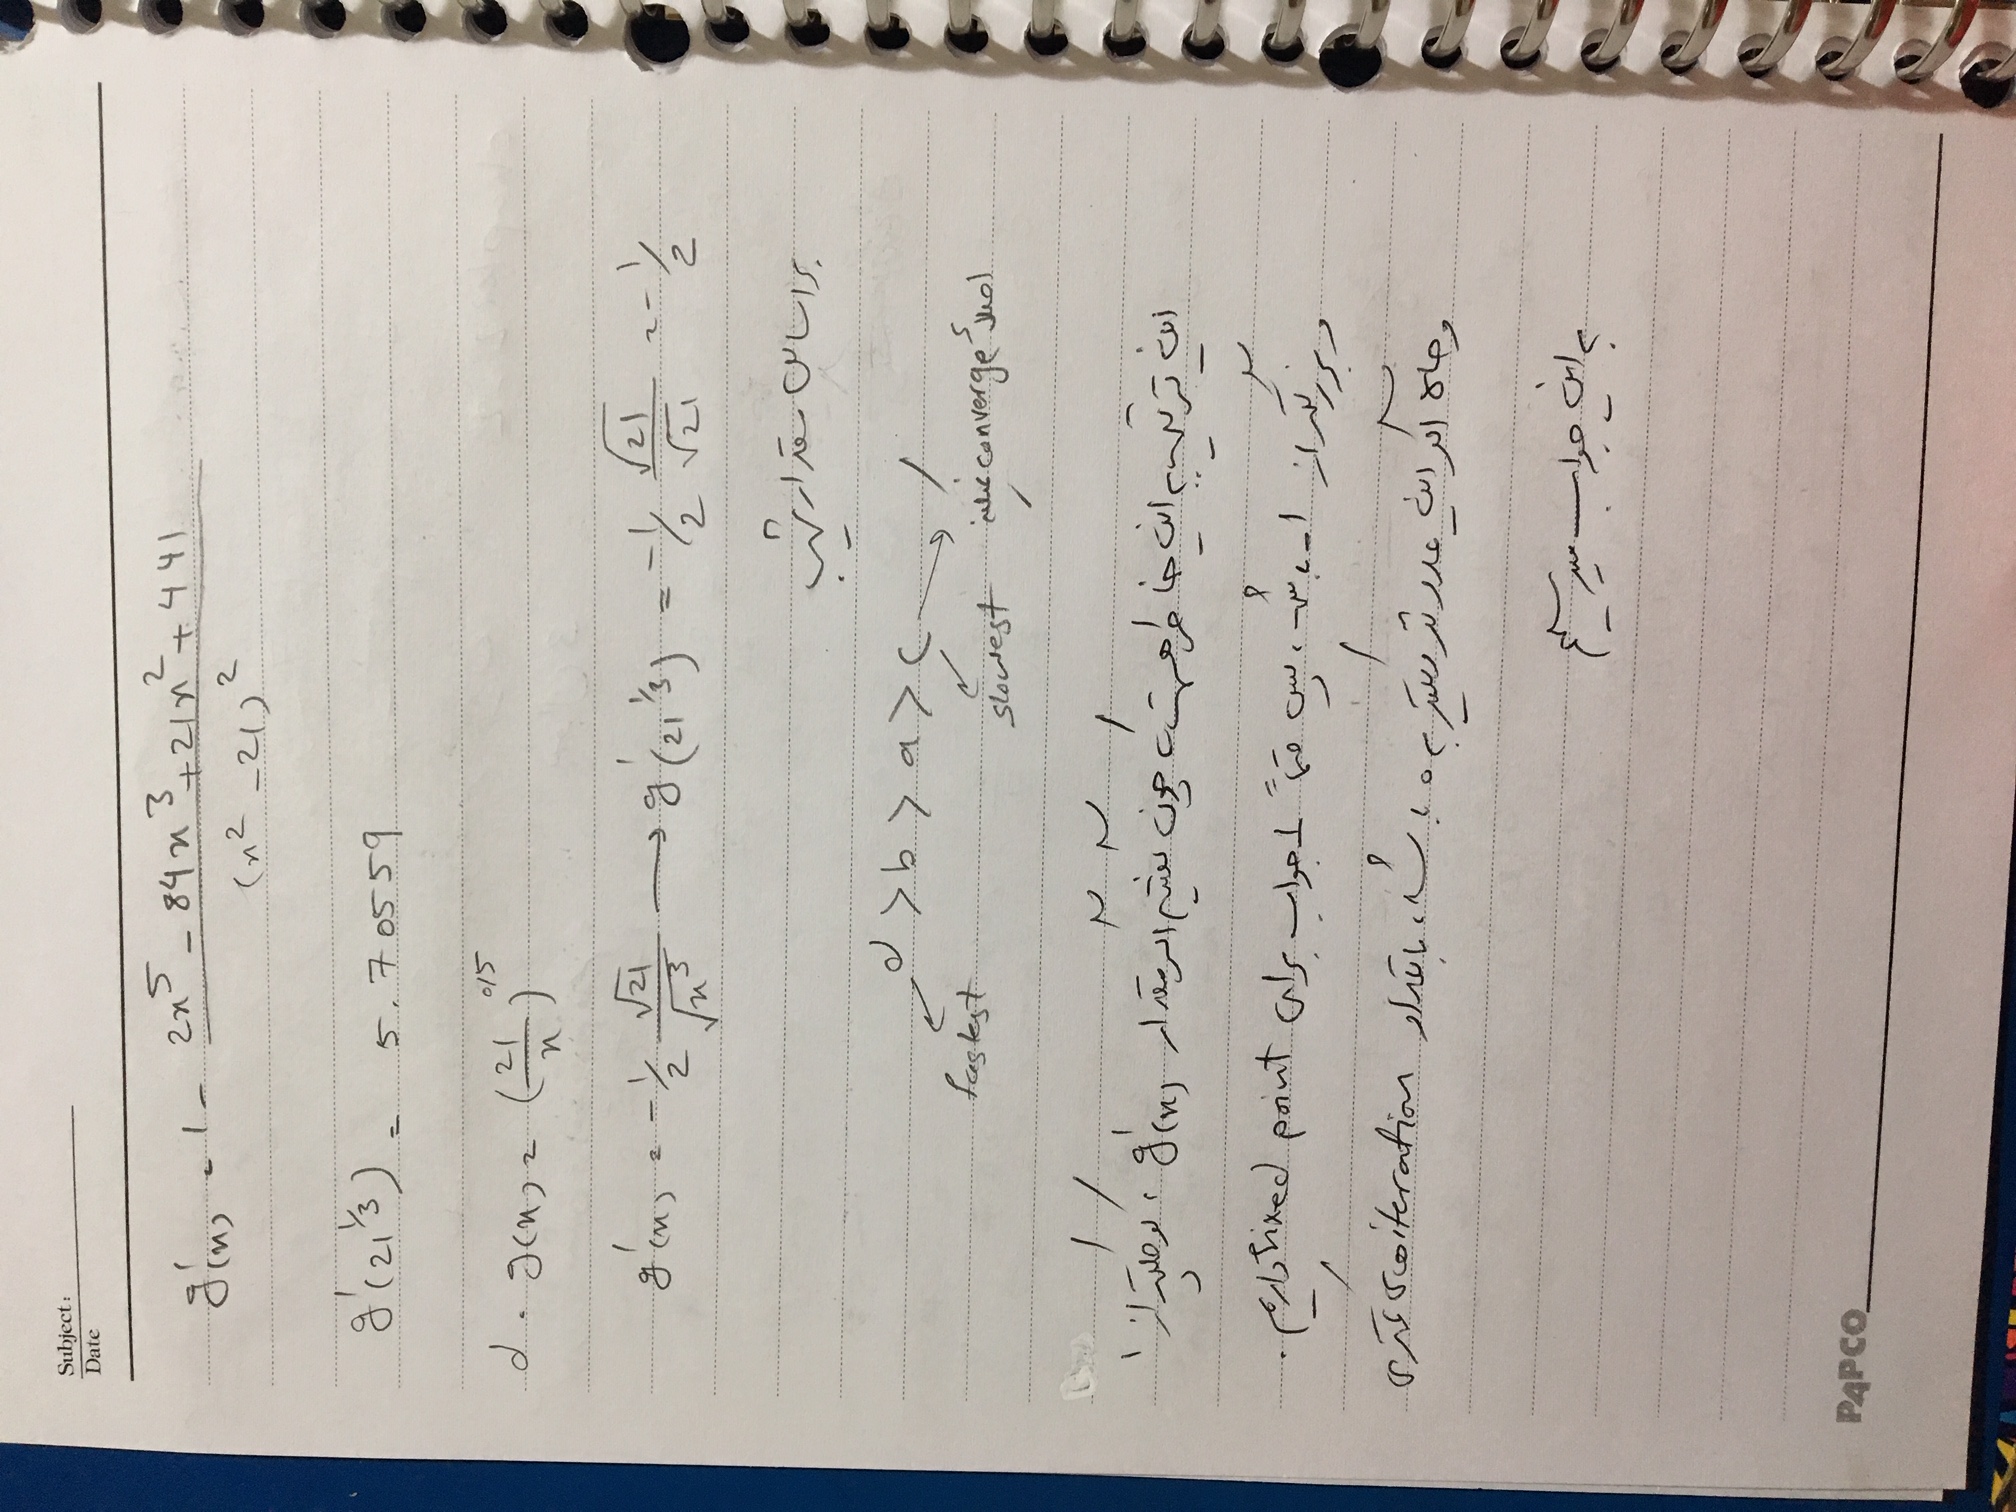 Subject:
Date
g'(x) = 1 - (2x^5 - 84x^3 + 21x^2 + 441) / (x^2 - 21)^2
g'(21^1/3) = 5.70559
d. g(x) = (21/x)^0/5
g'(x) = -1/2 √21/√x^3 → g'(21^1/3) = -1/2 √21/√21 = -1/2
بر اساس مقدار شیب
d > b > a > c
fastest slowest اصلاً converge نمیکنه
این ترتیب به این خاطر هست که چون گفتیم اگر مقدار g'(x)، کوچکتر از 1
و بزرگتر از 1- باشد، پس حتماً 1 جواب برای fixed point داریم.
و حالا اگر این عدد نزدیکتر به 0 باشد، با تعداد iteration های کمتری
به این جواب میرسیم
PAPCO